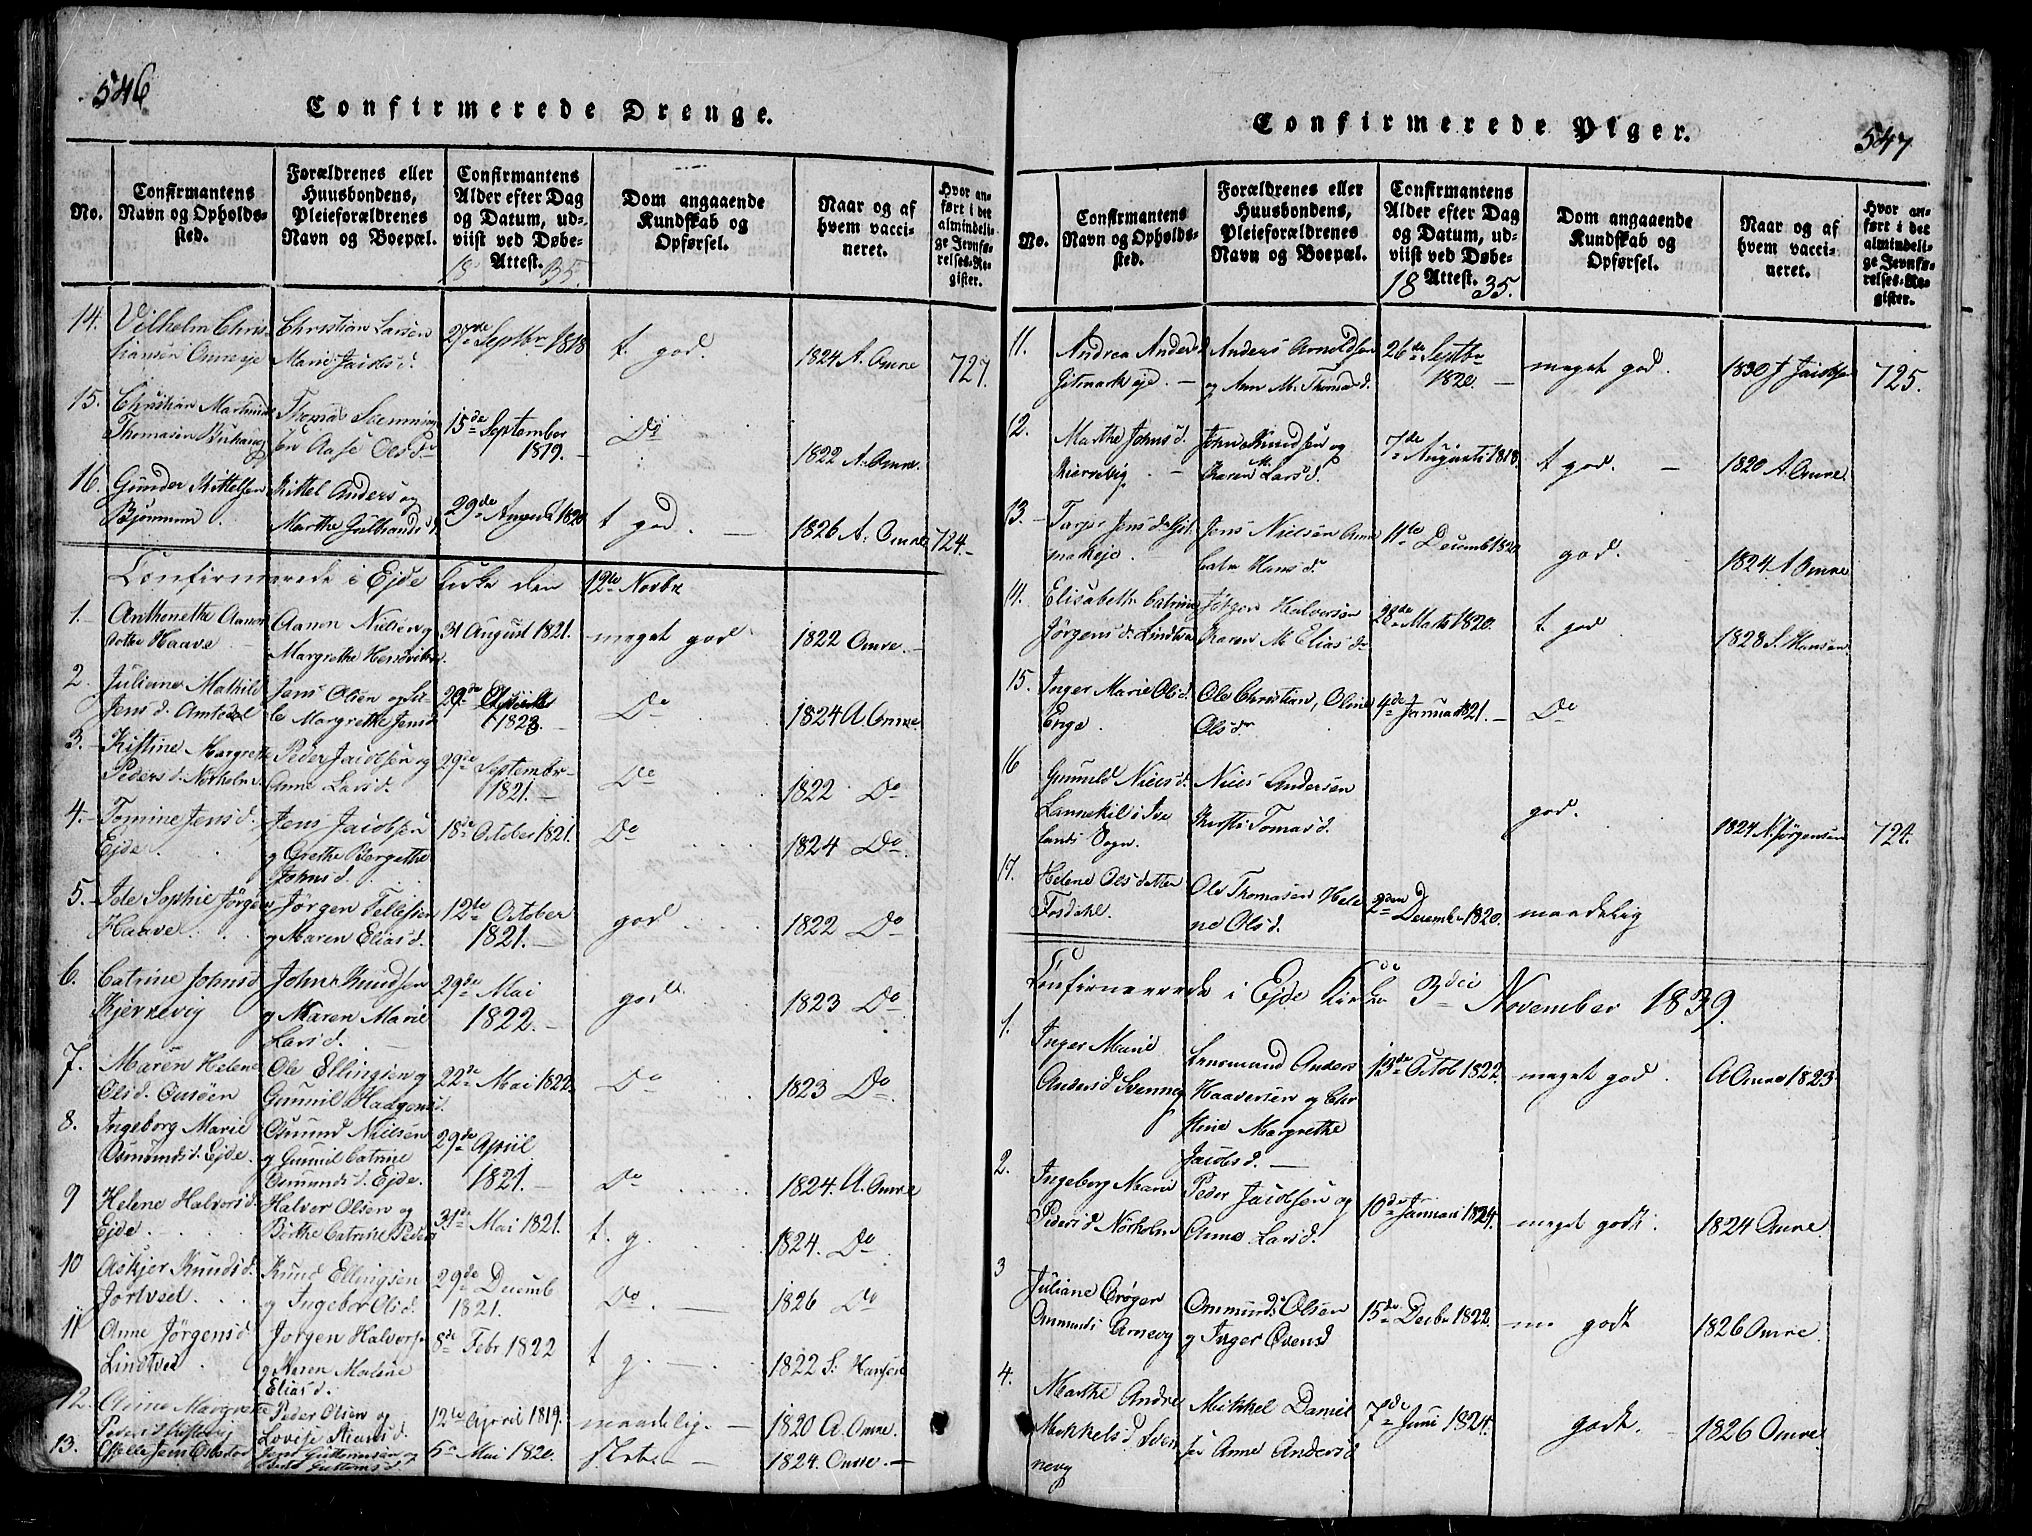 546
Confirmerede Drenge.
No.
Confirmantens Navn og Opholdssted.
Forældrenes eller Huusbondens, Pleieforældrenes Navn og Boepæl.
Confirmantens Alder efter Dag og Datum, udviist ved Døbe-Attest.
18 35.
Dom angaaende Kundskab og Opførsel.
Naar og af hvem vaccineret.
Hvor anført i det almindelige Jevnførelses-Register.
14. Vilhelm Christiansen Omreeje
Christian Larsen Marie Jacobsd.
27de Septbr 1818
t. god.
1824 A. Omre
727.
15. Christian Martinus Thomasen
Thomas Aase Olsd
15de September 1819.
Do
1822 A. Omre.
16. Gunder Kittelsen Bjönnum.
Kittel Anders og Marthe Gulbrandsd.
29de August 1820
t god.
1826 A. Omre
724.
Confirmerede i Ejde Kirke den 12te Novbr
1. Anthonette Aanonsdotter Haave
Aanon Nielsen og Margrethe
31 August 1821.
meget god
1822 Omre.
2. Juliane Mathild Jensd. Amtedal
Jens Olsen og Margrethe Jensd
29de 1823.
Do
1824 A. Omre
3. Kistine Margrethe Pedersd. Nörholm
Peder Jacobsen og Anne Larsd.
29de September 1821.
Do
1822 Do
4. Tomine Jensd. Ejde
Jens Jacobsen og Grethe Bergethe Johnsd.
18de October 1821.
Do
1824 Do.
5. Ide Sophie Jörgens Haave
Jörgen Tellefsen og Maren Eliasd.
12de October 1821.
god
1822 Do
6. Catrine Johnsd Kjernevig
John Knudsen og Maren Marie Larsd.
29de Mai 1822.
god
1823 Do
7. Maren Helene Olsd.
Ole Ellingsen og Gunnil Haagensd.
22de Mai 1822
Do
1823 Do.
8. Ingeborg Marie Osmundsd. Ejde.
Osmund Nielsen og Gunnil Catrine Osmundsd. Ejde.
29de April 1821.
Do
1824. A. Omre
9 Helene Halvorsd. Ejde.
Halvor Olsen og Birthe Catrine Peders
31de Mai 1821.
t. g.
1824. Do
10 Askjer Knudsd. Jortveit
Knud Ellingsen og Ingebor Olsd.
29de Decemb 1821.
Do.
1826 Do
11 Anne Jörgensd Lindtved
Jörgen Halvorsen og Maren Madene Eliasd.
8de Febr 1822
t g.
1822 S. Hansen
12. Anne Margrethe Pedersd
Peder Olsen og Lovise
12te April 1819.
maadelig.
1820 A. Omre.
13.
5te Mai 1820.
slet
1824. Omre.
547.
Confirmerede Piger.
No.
Confirmantens Navn og Opholdssted.
Forældrenes eller Huusbondens, Pleieforældrenes Navn og Boepæl.
Confirmantens Alder efter Dag og Datum, udviist ved Døbe-Attest.
18 35.
Dom angaaende Kundskab og Opførsel.
Naar og af hvem vaccineret.
Hvor anført i det almindelige Jevnførelses-Register.
11. Andrea Andersd Gitmarkeje.
Anders Arnoldsen og Ann M. Thomasd.
26de Septbr 1820.
meget god.
1830 J Jacobsen
725.
12. Marthe Johnsd. Kiervevig
John Knudsen og Karen M. Larsd.
7de August 1818.
t god.
1820 A. Omre.
13. Jensd Gitmakeje.
Jens Nielsen Hansd.
11te Decemb 1820
god.
1824. A Omre
14. Elisabeth Catrine Jörgensd. Lindtved
Jörgen Halvorsen Karen M Eliasd
28de Marts 1820.
t. god
1828 S. Hansen.
15. Inger Marie Olsd Enge.
Ole Christian, Oline Olsd
4de Januar 1821.
Do
16 Gunuld Nielsd. Lannekil i Ivelands Sogn.
Niels Andersen Kirsti Tomasd.
god.
1824 N. Jörgensen
724.
17. Helene Olsdatter Fosdahl.
Ole Thomasen Helene Olsd.
2den December 1820.
maadelig
Confirmerede i Ejde Kirke 3die November 1839.
1. Inger Marie Andersd Svennevig
Lensmand Anders Haaversen og Margrethe Jacobsd.
13de Octob 1822.
meget god.
A Omre 1823.
2. Ingeborg Marie Pedersd Nörholm
Peder Jacobsen og Anne Larsd.
10de Januari 1824.
meget godt.
1824 Omre.
3 Juliane Ommunds Arnevig
Ommund Olsen og Inger Evensd
15de Decbr 1822.
me godt
1826 Omre.
4. Marthe Andrea Mikkelsd. Svennevg
Mikkel Danielsen Anne Andersd
7de Juni 1824.
godt.
1826 Omre.